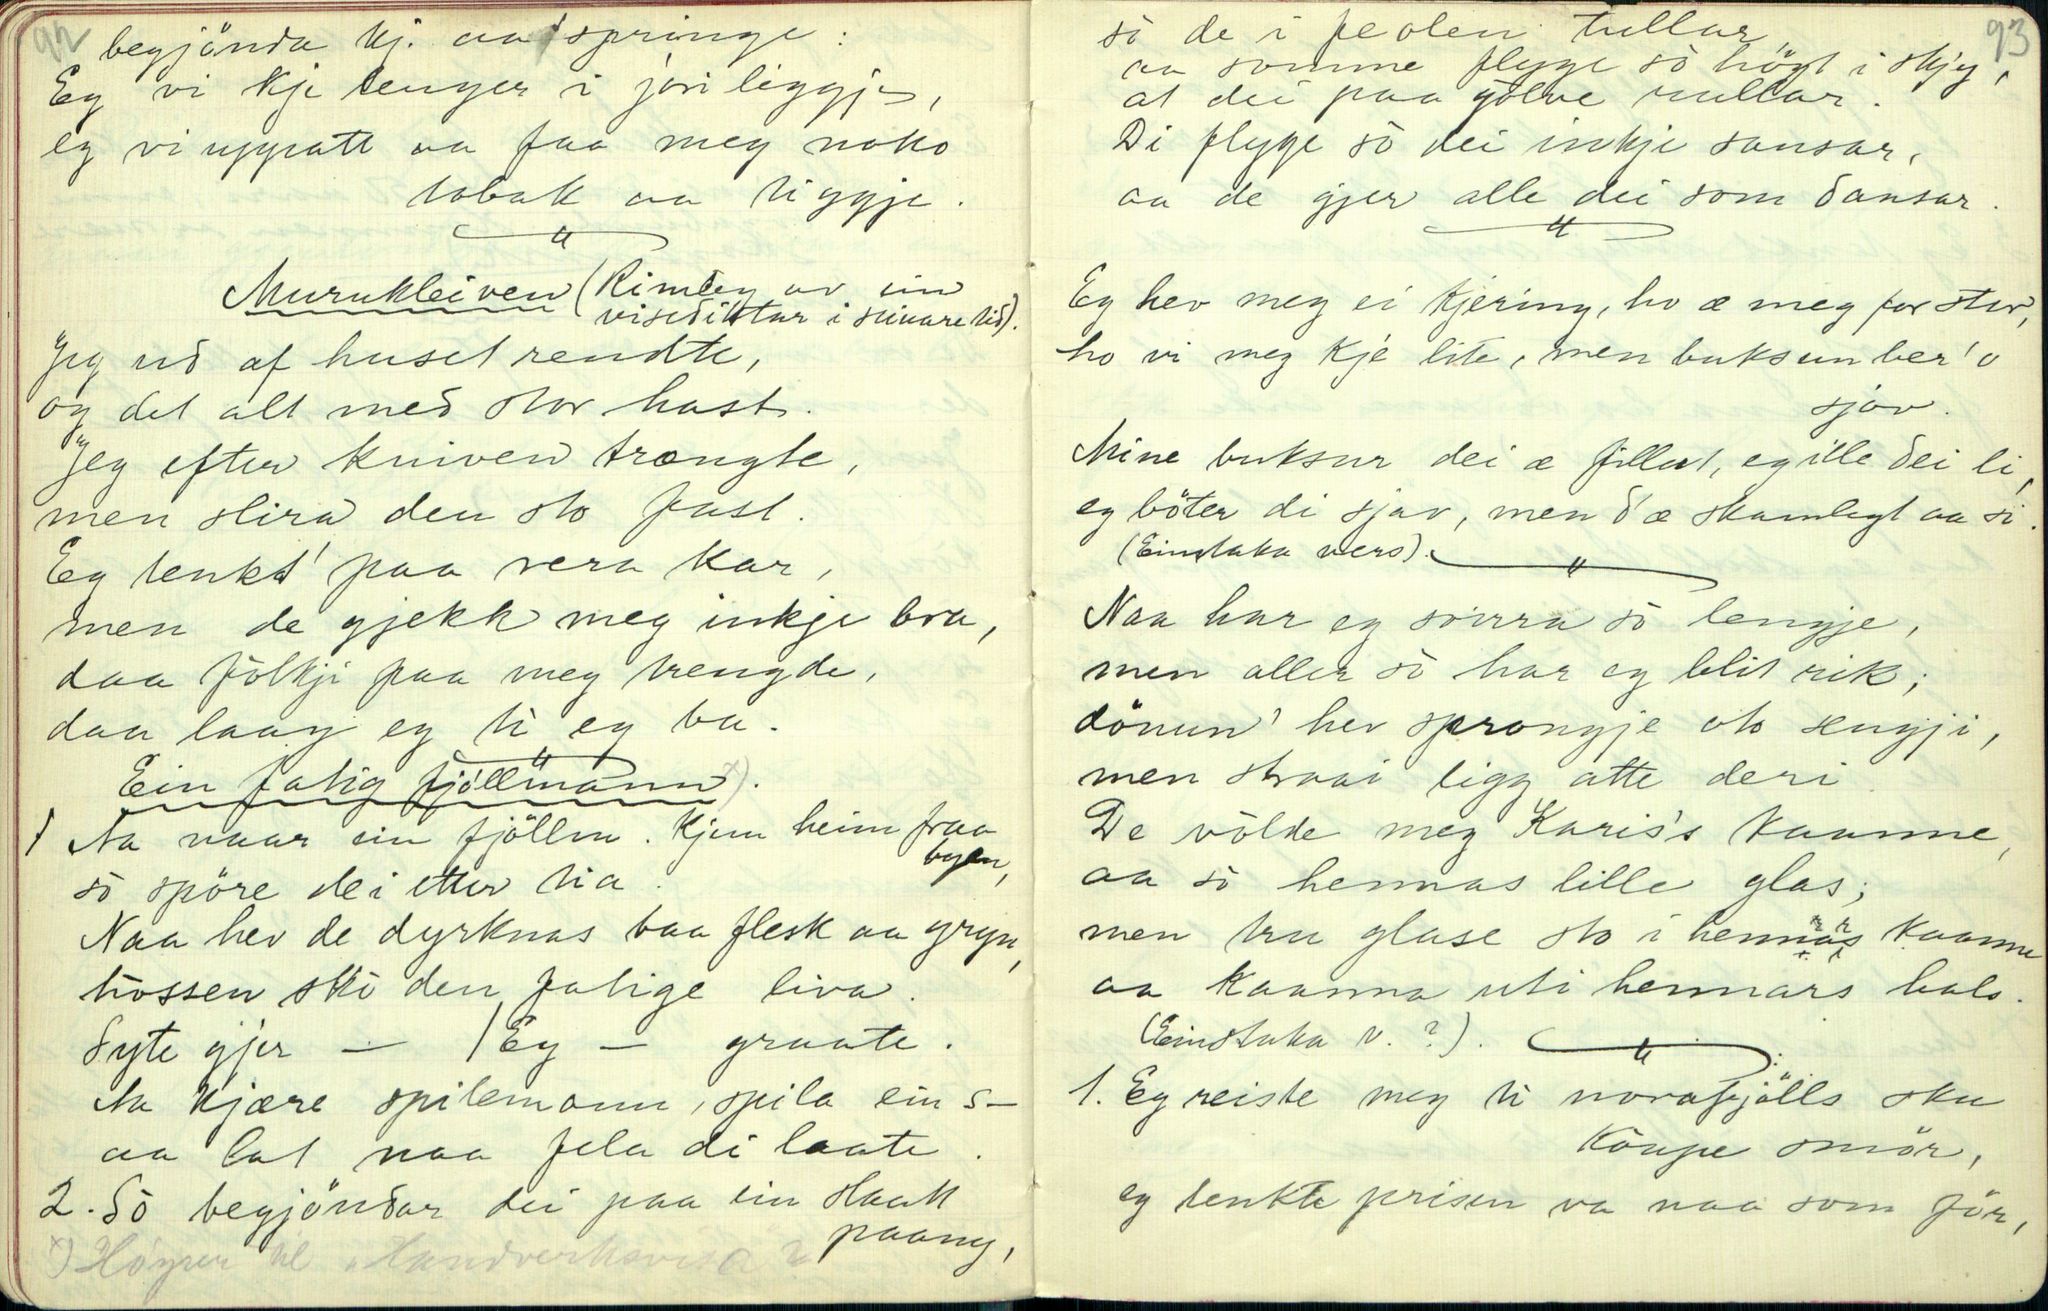 92
begjönda kj. aa springe:
Eg vi kje lenger i jori liggje,
eg vi uppatt aa faa meg noko
tobak aa tiggje.
Murukleiven (Rimleg av ein
visediktar i seinare tid).
Jeg ud af huset rendte,
og det alt med stor hast.
Jeg efter kniven trængte,
men slira den sto fast.
Eg tenkt' paa vera kar,
men de gjekk meg inkje bra,
daa folkji paa meg trengde,
daa laag eg ti eg ba.
Ein fatig fjöllmann x).
1 Na naar ein fjöllm. kjem heim fraa
byen,
so spöre dei etter tia.
Naa hev de dyrknas baa flesk aa gryn,
hossen sko den fatige liva.
Syte gjer — / Eg — graate.
Aa kjære spilemann, spila ein s—
aa lat naa fela di laate.
2. So begjöndar dei paa ein slaak
paany,
x) Höyrer til "Handverksvisa"?
93
so de i feolen tullar,
aa somme flyge so högt i skjy,
at dei paa golve rullar.
Di flyge so dei inkje sansar,
aa de gjer alle dei som dansar.
Eg hev meg ei kjering, ho æ meg for stor,
ho vi meg kje lite, men buksun ber 'o
sjøv.
Mine buksur dei æ fillut, eg ille dei li,
eg böter di sjav, men d'æ skamlegt aa si.
(Einstaka vers).
Naa har eg svirra so lengje,
men aller so har eg blit rik;
dönun' hev sprongje oto sengji,
men straai ligg atte deri
De volde meg Karis's kaanne,
aa so hennas lille glas;
men tru glase sto i hennars kaanne
aa kaanna uti hennars hals.
(Einstaka v. ?).
1. Eg reiste meg ti norafjölls sku
koupe smör,
eg tenkte prisen va naa som för,